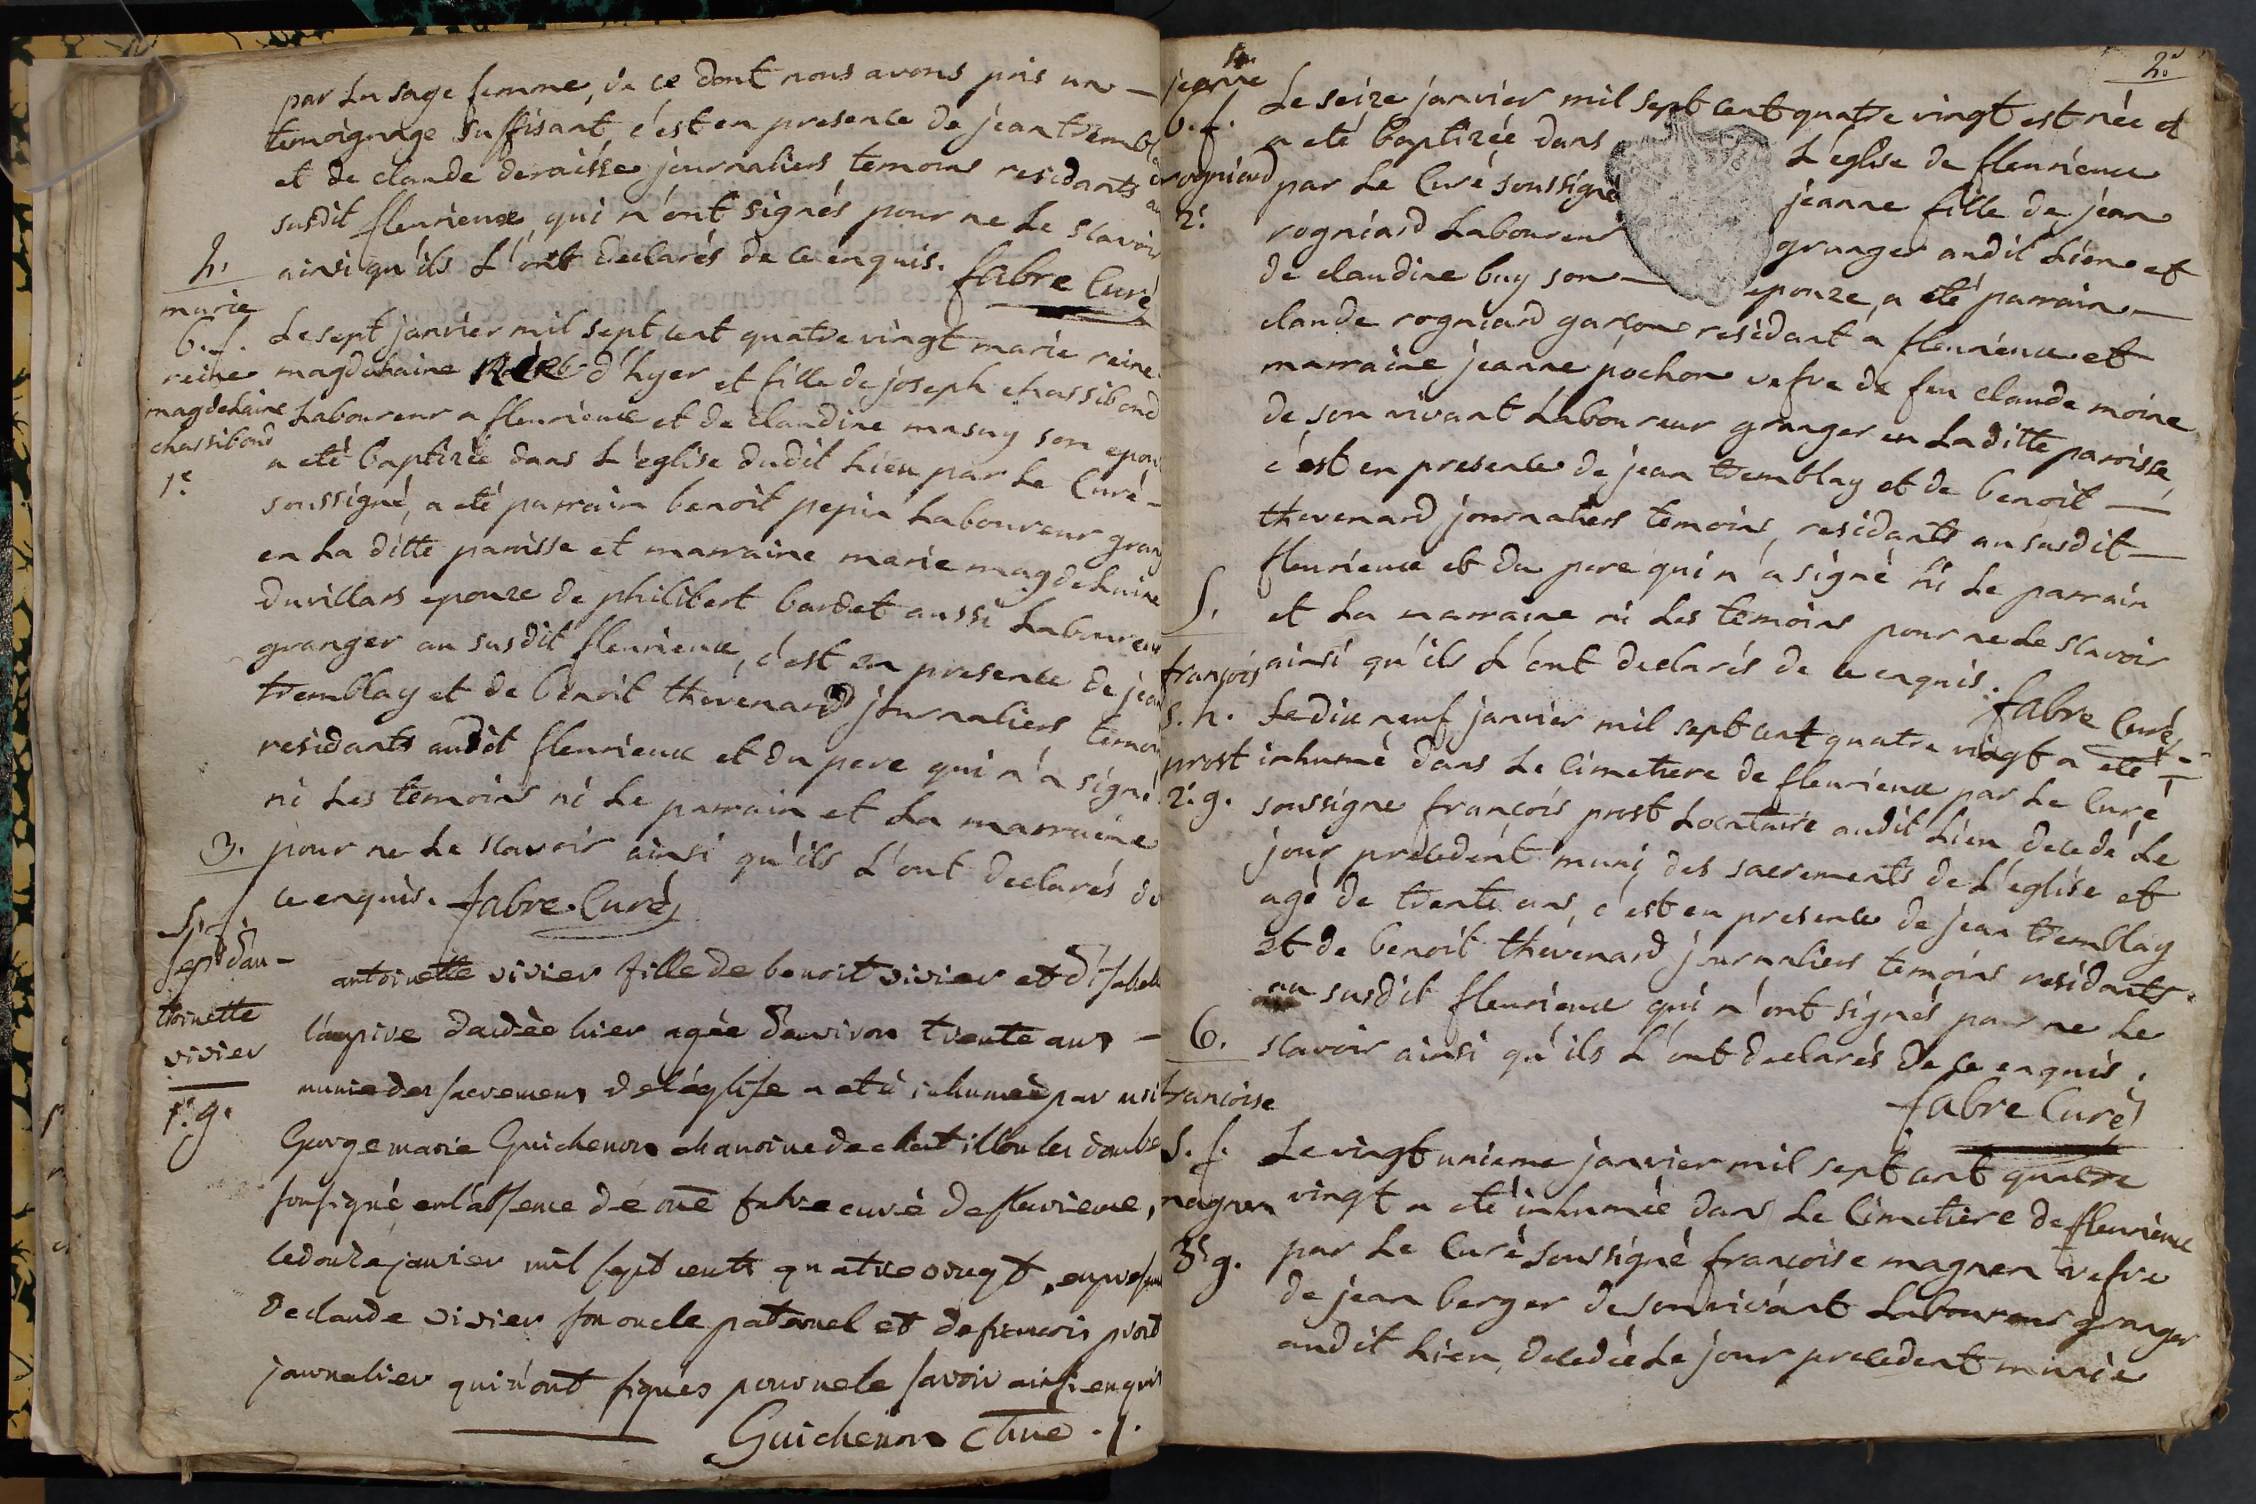 par la sage femme, de ce dont nous avons pris un
temoignage suffisant, c'est en presence de jean trembl
et de claude deraisse journaliers temoins residants au
susdit fleurieux, qui n'ont signés pour ne le sçavoir
ainsi qu'ils l'ont declarés de ce enquis. fabre Curé
2.
marie
b. f.
reine
magdelaine
chassibond
1.e
Le sept janvier mil sept cent quatre vingt marie reine
magdelaine née d'hyer et fille de joseph chassibond
Laboureur a fleurieux et de claudine masuy son epou
a eté baptizée dans L'eglise dudit Lieu par Le Curé
soussigné, a eté parrain benoit pepin Laboureur gran
en La ditte paroisse et marraine marie magdelaine
duvillars epouze de philibert bardet aussi Laboureur
granger au susdit fleurieux, c'est en presence de jean
tremblay et de benoit thevenard journaliers temoi
residants audit fleurieux et du pere qui n'a signé
ni Les temoins ni Le parrain et La marraine
pour ne Le sçavoir ainsi qu'ils L'ont declarés de
ce enquis. fabre Curé
3.
S. f.
sep d'an-
toinette
vivier
1.e g.
antoinette vivier fille de benoit vivier et d'isabelle
decedèe hier agée d'environ trente ans
munie des sacremens de l'église a eté inhumée par
George marie Guichenon chanoine de chatillon les dombe
soussigné en l'absence de fabre curé de fleurieux,
le douze janvier mil sept cents quatre vingt, en presen
de claude vivier son oncle paternel et de francois prost
journalier qui n'ont signés pour ne le savoir ainsi enquis
Guichenon Chne
2.e
4.
jeanne
b. f.
rogniard
2.e
Le seize janvier mil sept cent quatre vingt est née et
a eté baptizée dans L'eglise de fleurieux
par Le Curé soussigné jeanne fille de jean
rogniard Laboureur granger audit Lieu et
de claudine buy son epouze, a eté parrain
claude rogniard garçon residant a fleurieux et
marraine jeanne pochon vefve de feu claude moine
de son vivant Laboureur granger en La ditte paroisse,
c'est en presence de jean tremblay et de benoit
thevenard journaliers temoins, residants au susdit
fleurieux et du pere qui n'a signé ni Le parrain
et La marraine ni Les temoins pour ne Le sçavoir
ainsi qu'ils L'ont declarés de ce enquis. fabre Curé
5.
françois
s. h.
prost
2.e g.
Le dix neuf janvier mil sept cent quatre vingt a eté
inhumé dans Le Cimetiere de fleurieux par Le Curé
soussigné françois prost Locataire audit Lieu decedé Le
jour precedent muni des sacrements de L'eglise et
agé de trente ans, c'est en presence de jean tremblay
et de benoit thevenard journaliers temoins residants
au susdit fleurieux qui n'ont signés pour ne Le
sçavoir ainsi qu'ils L'ont declarés de ce enquis.
fabre Curé
6.
francoise
S. f.
magnen
3.e g.
Le vingt unieme janvier mil sept cent quatre
vingt a eté inhumée dans Le Cimetiere de fleurieux
par Le Curé soussigné françoise magnen vefve
de jean berger de son vivant Laboureur granger
audit Lieu, decedée Le jour precedent munie